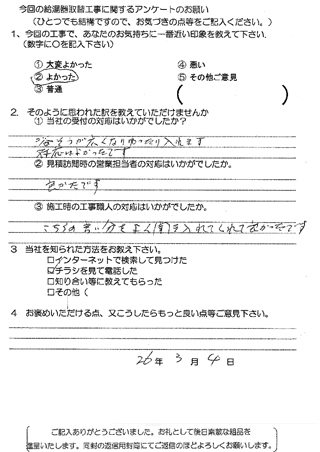 今回の給湯器取替工事に関するアンケートのお願い
(ひとつでも結構ですので、お気づきの点等をご記入ください。)
1、今回の工事で、あなたのお気持ちに一番近い印象を教えて下さい。
(数字に○を記入下さい)
① 大変よかった ④ 悪い
② よかった ⑤ その他ご意見
③ 普通 ( )
2. そのように思われた訳を教えていただけませんか
① 当社の受付の対応はいかがでしたか?
浴そうが広くなりゆったり入れます
対応はよかったです
② 見積訪問時の営業担当者の対応はいかがでしたか。
良かったです
③ 施工時の工事職人の対応はいかがでしたか。
こちらの言い分をよく聞き入れてくれて良かったです
3 当社を知られた方法をお教え下さい。
□インターネットで検索して見つけた
☑チラシを見て電話した
□知り合い等に教えてもらった
□その他(
4 お褒めいただける点、又こうしたらもっと良い点等ご意見下さい。
26年 3月 4日
ご記入ありがとうございました。お礼として後日素敵な粗品を
進呈いたします。同封の返信用封筒にてご返信のほどよろしくお願いします。